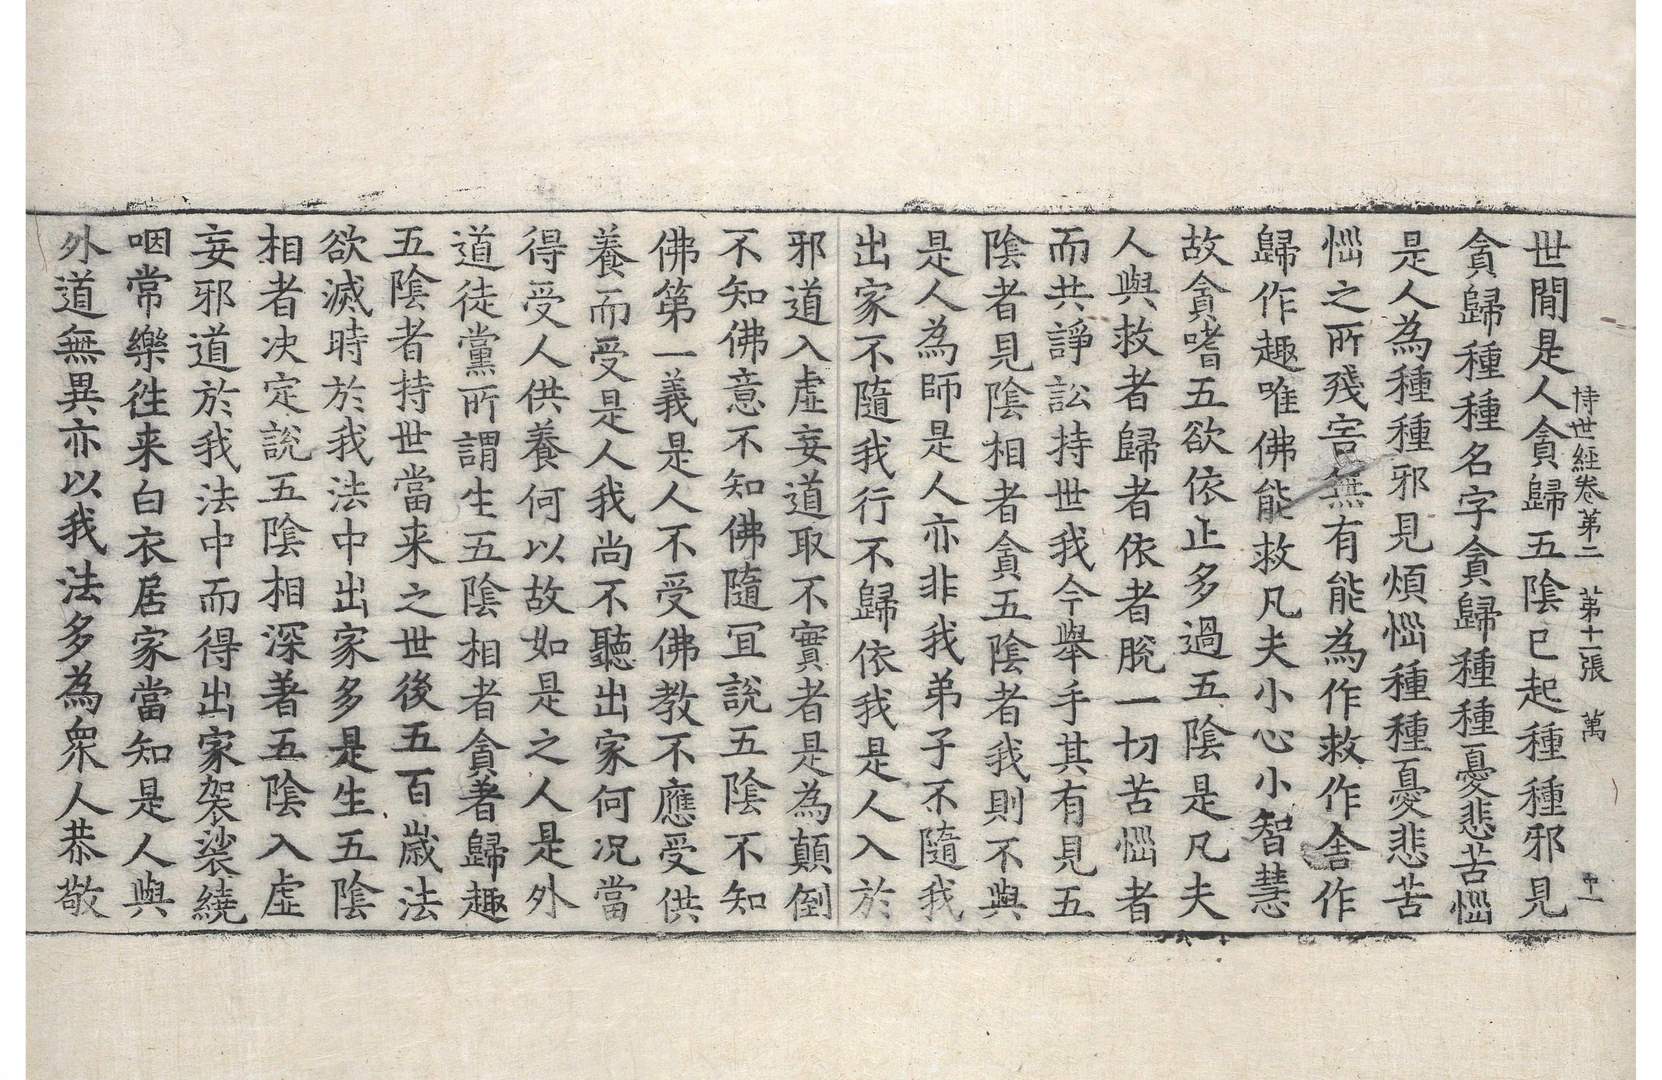 持世經卷第二 第十一張 萬 中二
世間是人貪歸五陰已起種種邪見
貪歸種種名字貪歸種種憂悲苦惱
是人為種種邪見煩惱種種憂悲苦
惱之所殘害無有能為作救作舍作
歸作趣唯佛能救凡夫小心小智慧
故貪嗜五欲依止多過五陰是凡夫
人與救者歸者依者脫一切苦惱者
而共諍訟持世我今舉手其有見五
陰者見陰相者貪五陰者我則不與
是人為師是人亦非我弟子不隨我
出家不隨我行不歸依我是人入於
邪道入虛妄道取不實者是為顛倒
不知佛意不知佛隨冝說五陰不知
佛第一義是人不受佛教不應受供
養而受是人我尚不聽出家何况當
得受人供養何以故如是之人是外
道徒黨所謂生五陰相者貪著歸趣
五陰者持世當来之世後五百歲法
欲滅時於我法中出家多是生五陰
相者决定說五陰相深著五陰入虛
妄邪道於我法中而得出家袈裟繞
咽常樂徃来白衣居家當知是人與
外道無異亦以我法多為衆人恭敬